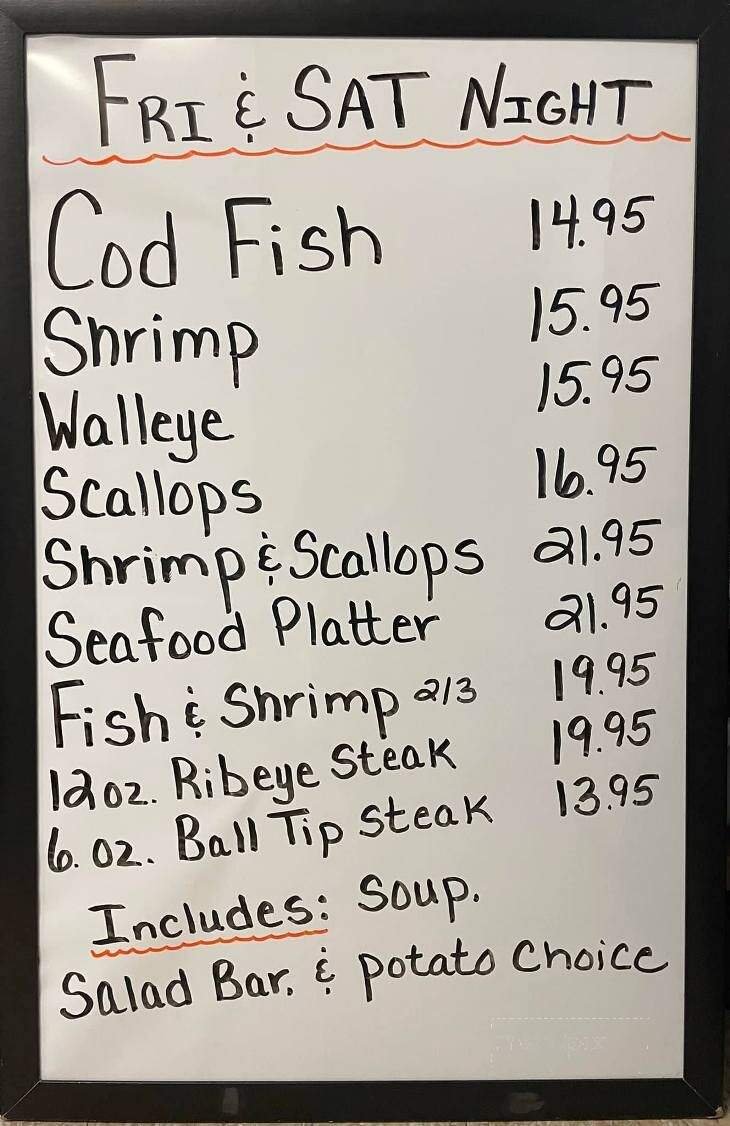 FRI & SAT NIGHT
Cod Fish 14.95
Shrimp 15.95
Walleye 15.95
Scallops 16.95
Shrimp & Scallops 21.95
Seafood Platter 21.95
Fish & Shrimp 2/3 19.95
12 oz. Ribeye Steak 19.95
6. oz. Ball Tip Steak 13.95
Includes: Soup.
Salad Bar. & potato choice